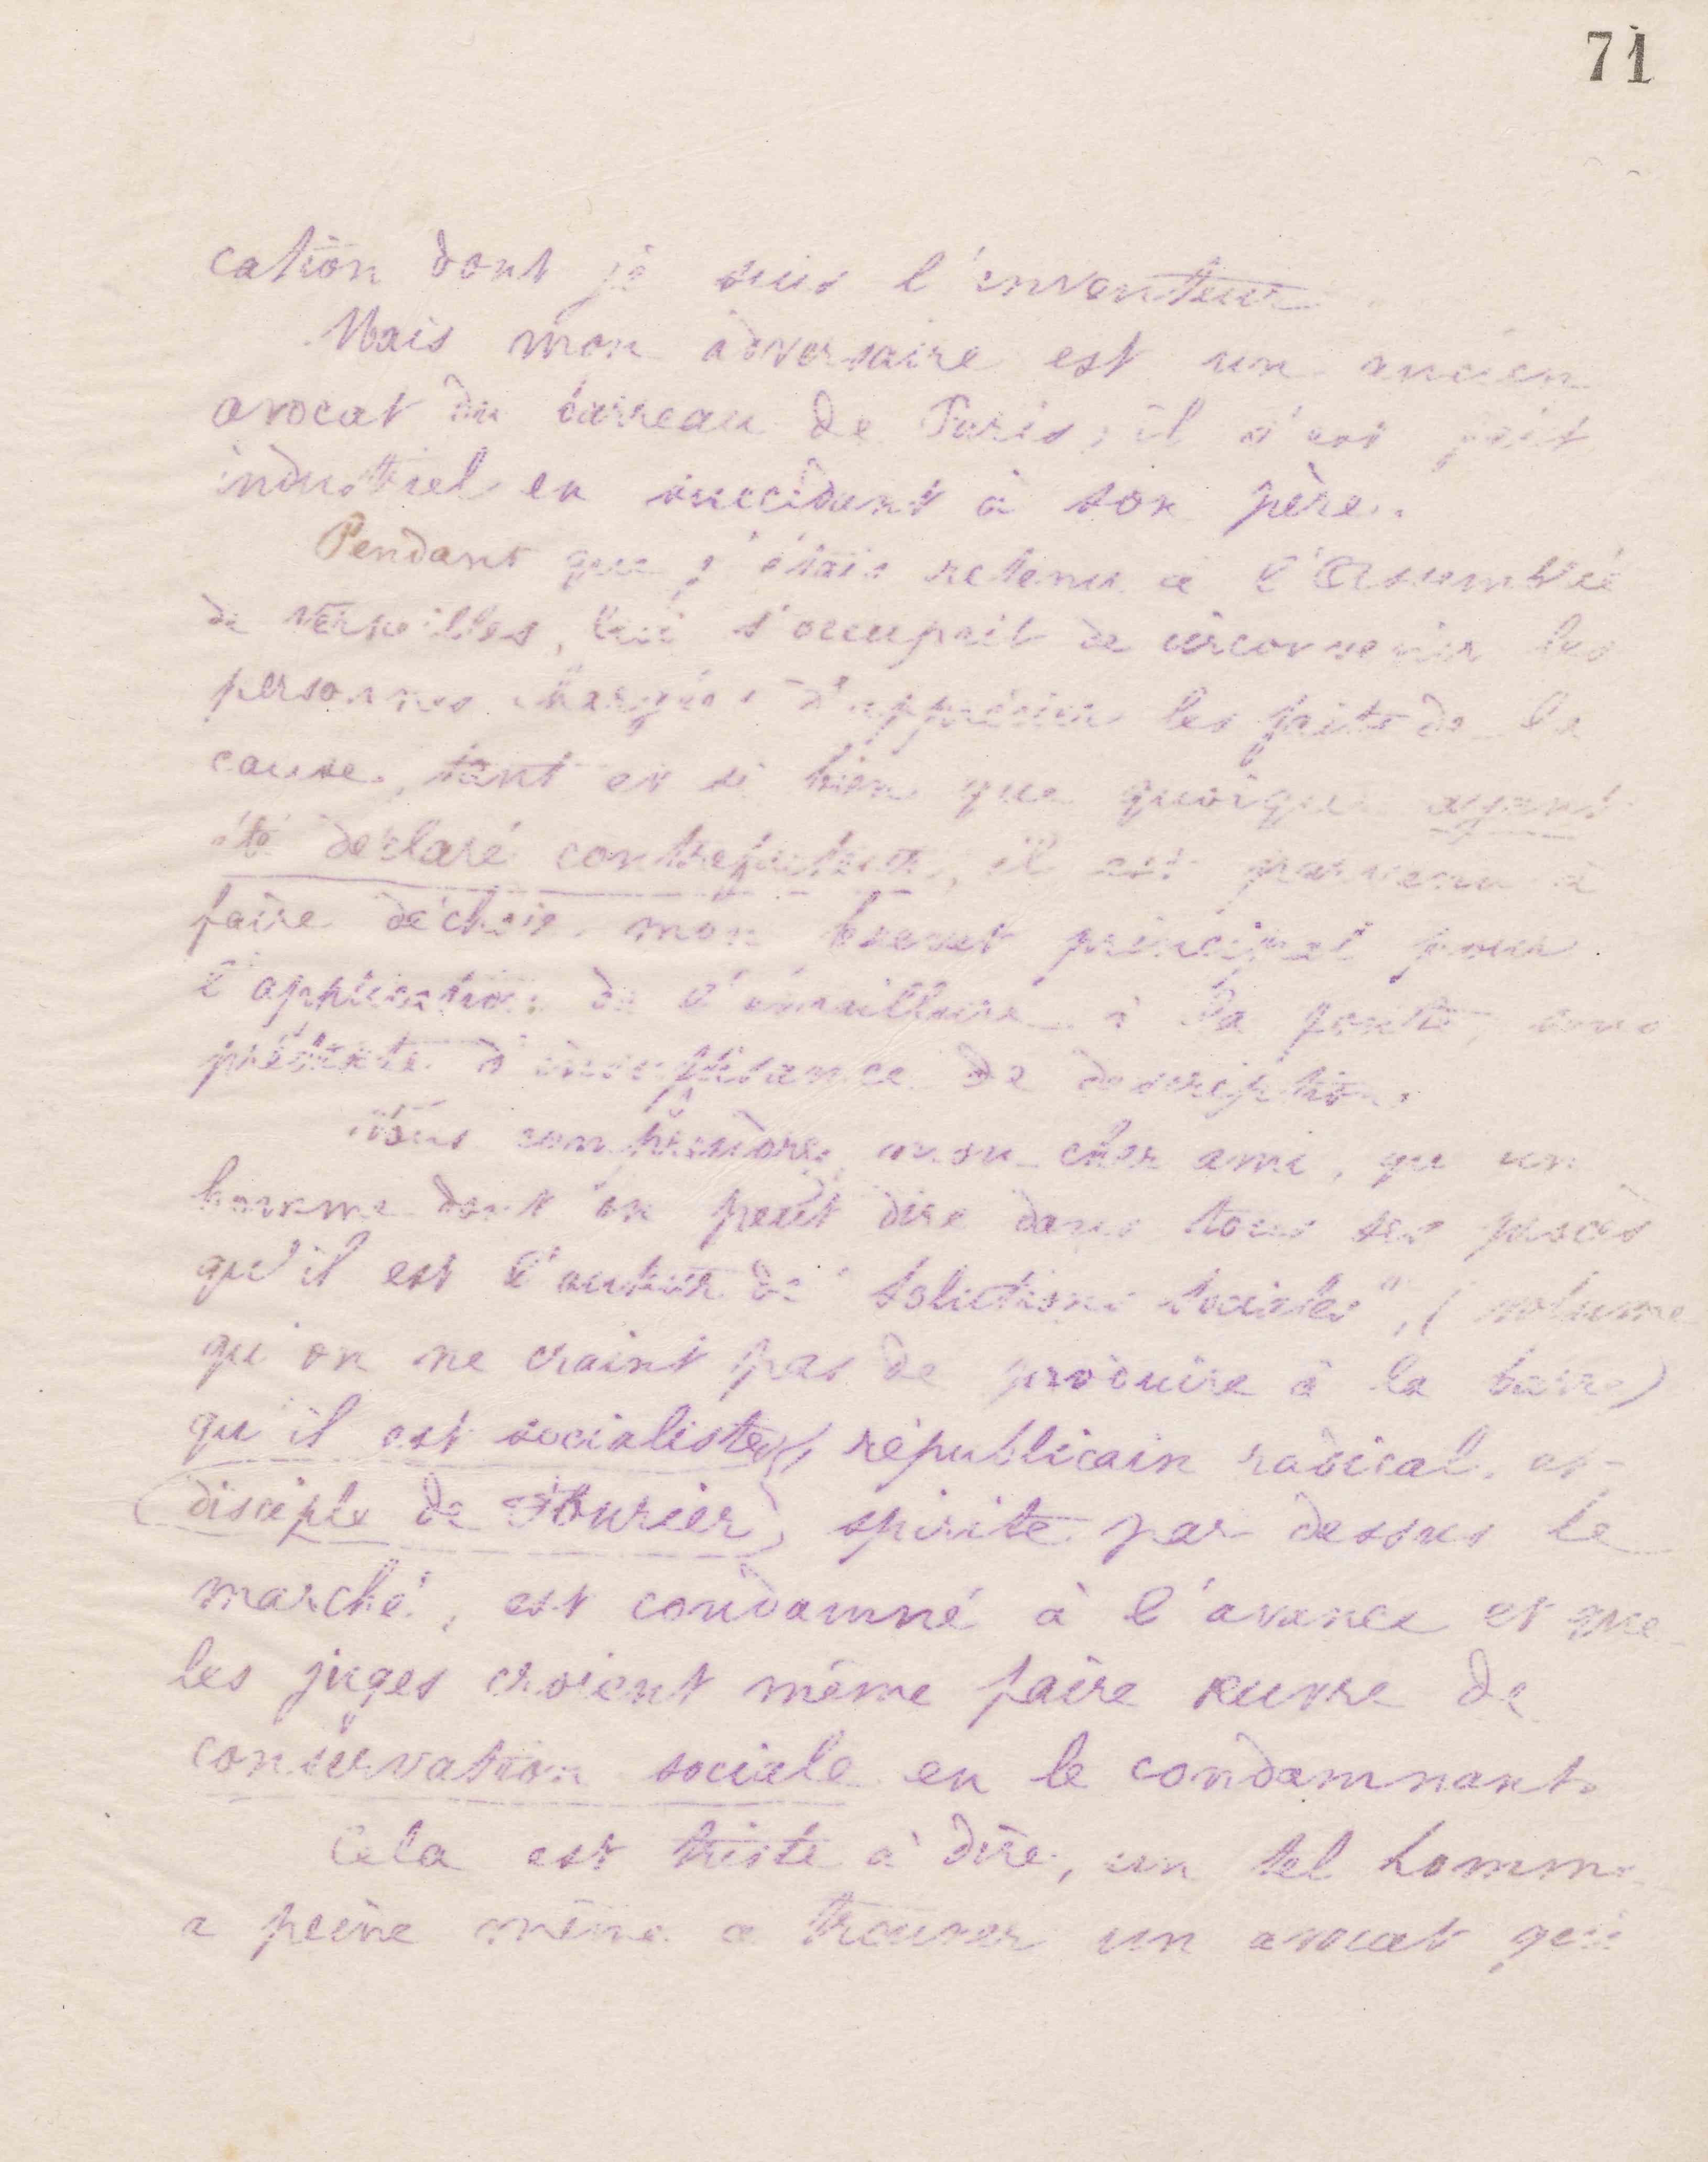 71
cation dont je suis l'inventeur.
Mais mon adversaire est un ancien
avocat du barreau de Paris; il s'est fait
industriel en succédant à son père.
Pendant que j'étais retenu à l'Assemblée
de Versailles, lui s'occupait de circonvenir les
personnes chargées d'apprécier les faits de la
cause, tant et si bien que quoique ayant
été déclaré contrefacteur, il est parvenu à
faire déchoir mon brevet principal pour
l'application de l'émaillure à la fonte, sous
prétexte d'insuffisance de description.
Vous comprendrez, mon cher ami, qu'un
homme dont on peut dire dans tous ses procès
qu'il est l'auteur de "Solutions sociales", (volume
qu'on ne craint pas de produire à la barre)
qu'il est socialiste, républicain radical, et
disciple de Fourier, spirite par dessus le
marché, est condamné à l'avance et que
les juges croient même faire œuvre de
conservation sociale en le condamnant.
Cela est triste à dire, un tel homme
a peine même à trouver un avocat qui